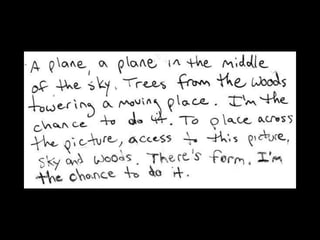 A plane, a plane in the middle
of the sky. Trees from the woods
towering a moving place. I'm the
chance to do it. To place across
the picture, access to this picture,
sky and woods. There's form. I'm
the chance to do it.